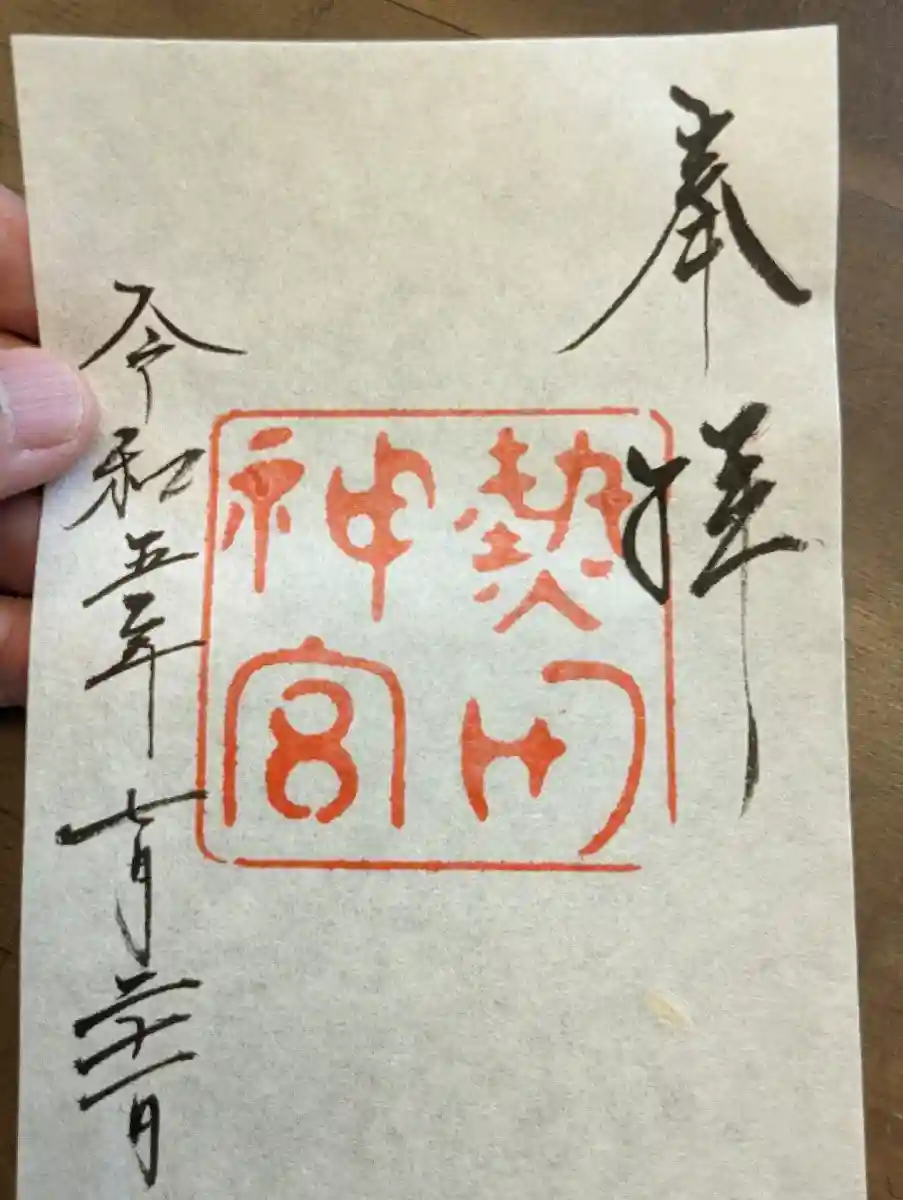 奉拝
熱田
神宮
令和五年七月二十一日